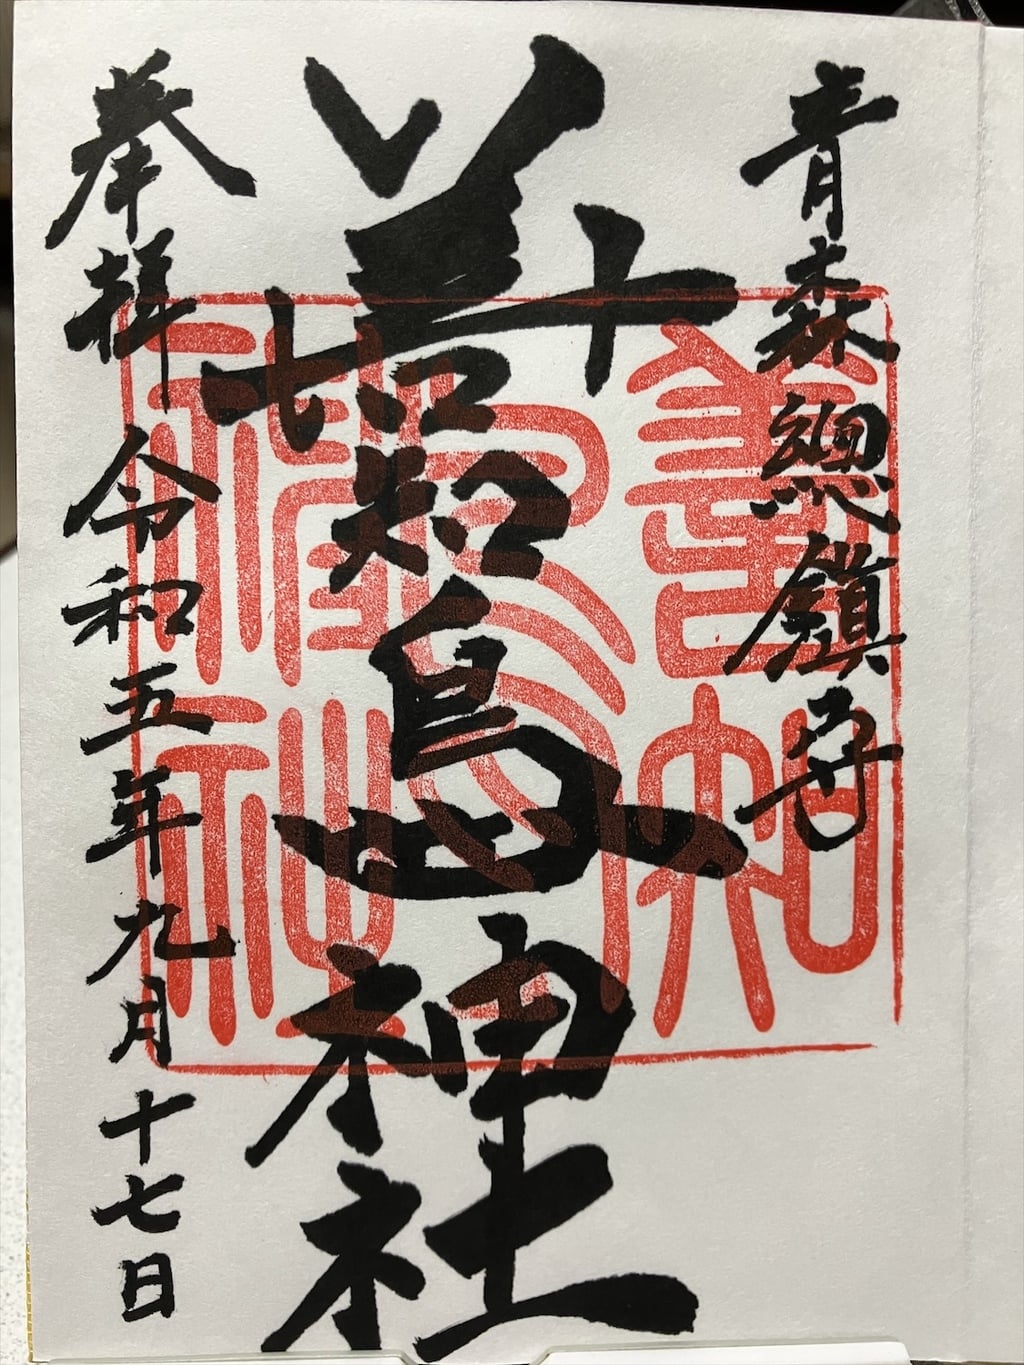 青森總鎮守
善知鳥神社
奉拝 令和五年九月十七日